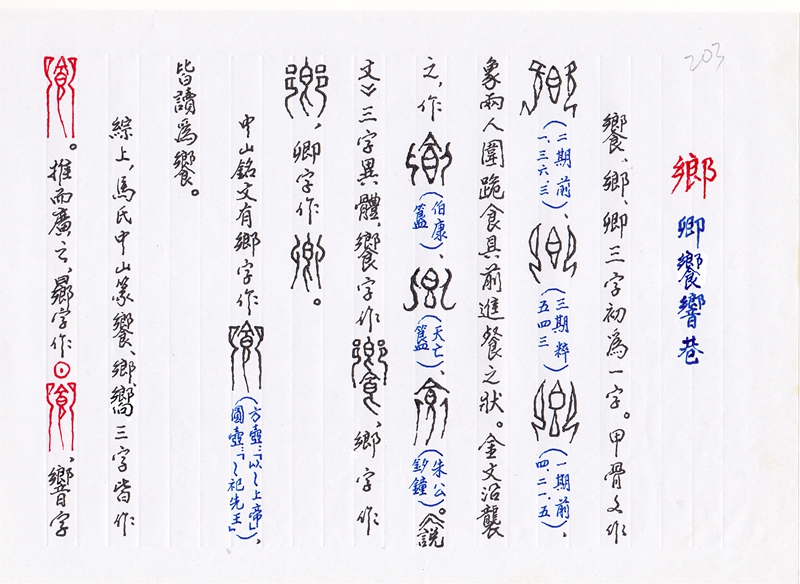 203
鄉 卿饗響巷
饗、鄉、卿三字初為一字。甲骨文作
(二期前一.三六.三)、(三期粹五四三)、(一期前四.二一.五),
象兩人圍跪食具前進餐之狀。金文沿襲
之,作(伯康簋)、(天亡簋)、(朱公釛鐘)。《說
文》三字異體,饗字作 ,鄉字作
,卿字作 。
中山銘文有鄉字作(方壺:「以~上帝」,圓壺:「~祀先王」)
皆讀為饗。
綜上,馬氏中山篆饗、鄉、嚮三字皆作
。推而廣之,曏字作 ,響字